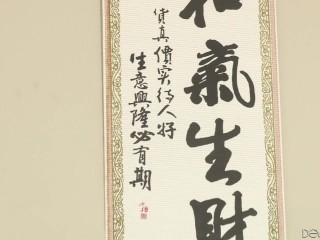 和氣生財
貨真價实待人好
生意興隆必有期